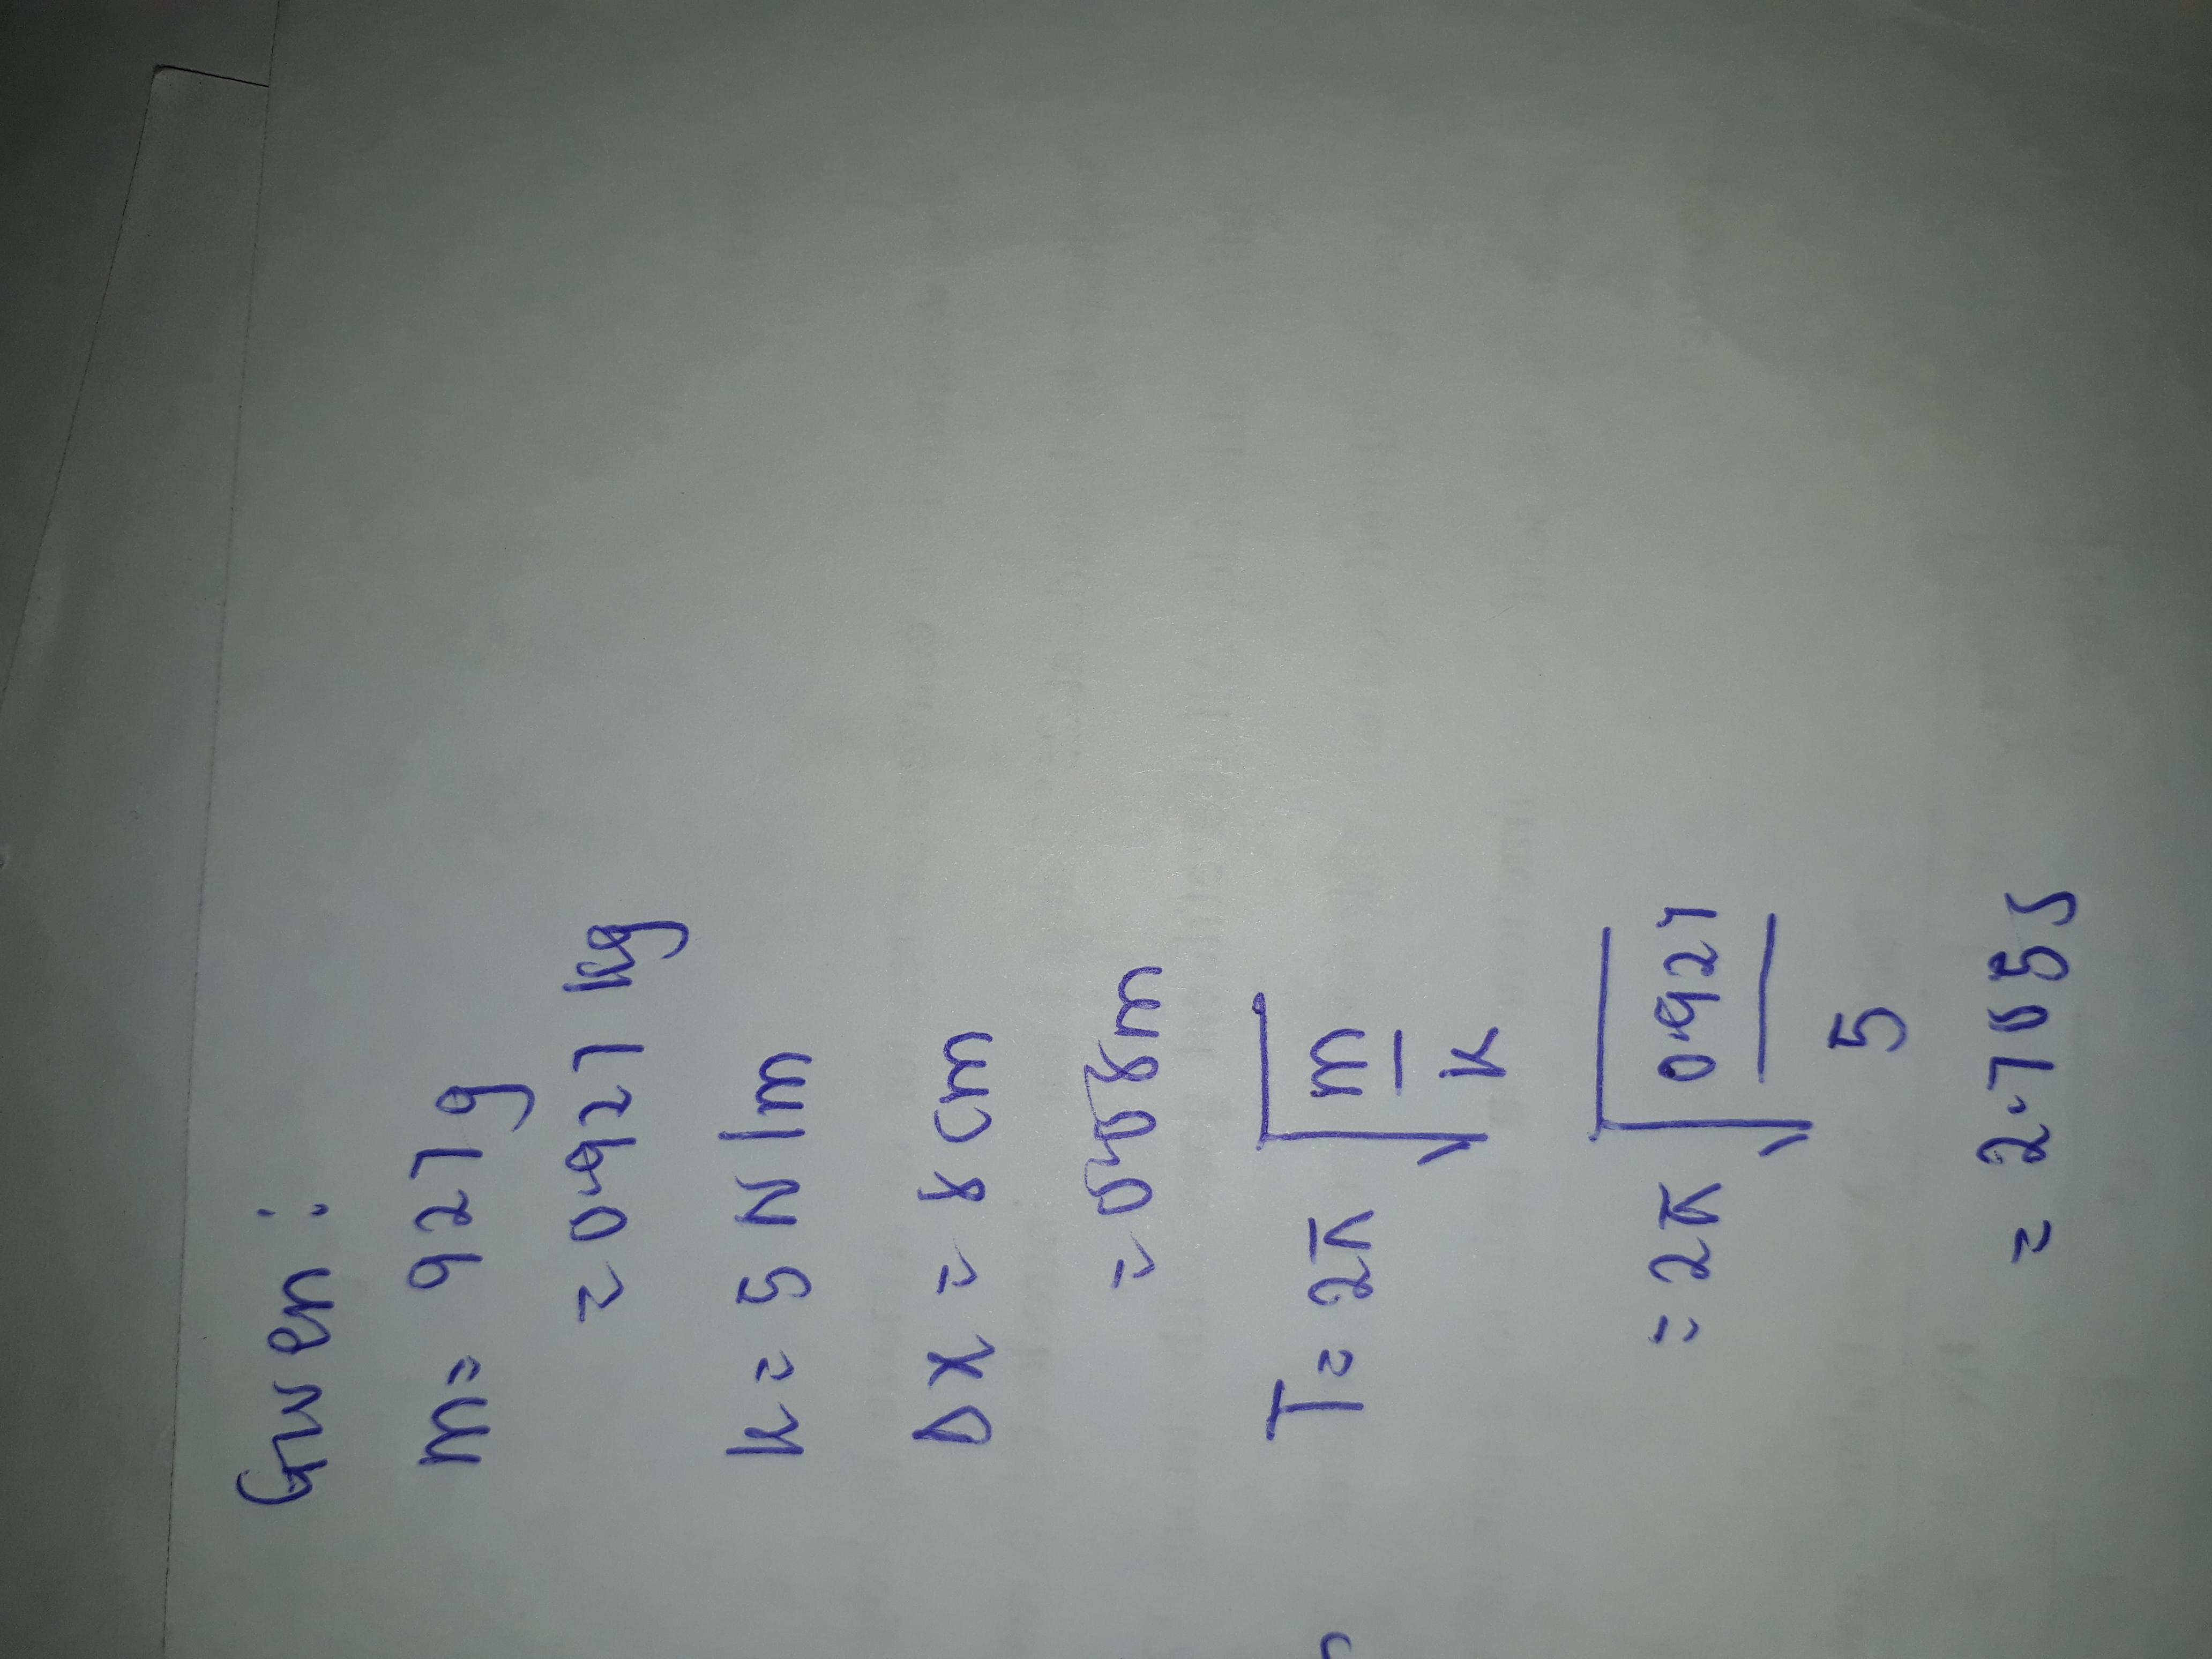 Given:
m = 927 g
= 0.927 kg
k = 5 N/m
Δx = 8 cm
= 0.08m
T = 2π √(m/k)
= 2π √(0.927/5)
= 2.705 s